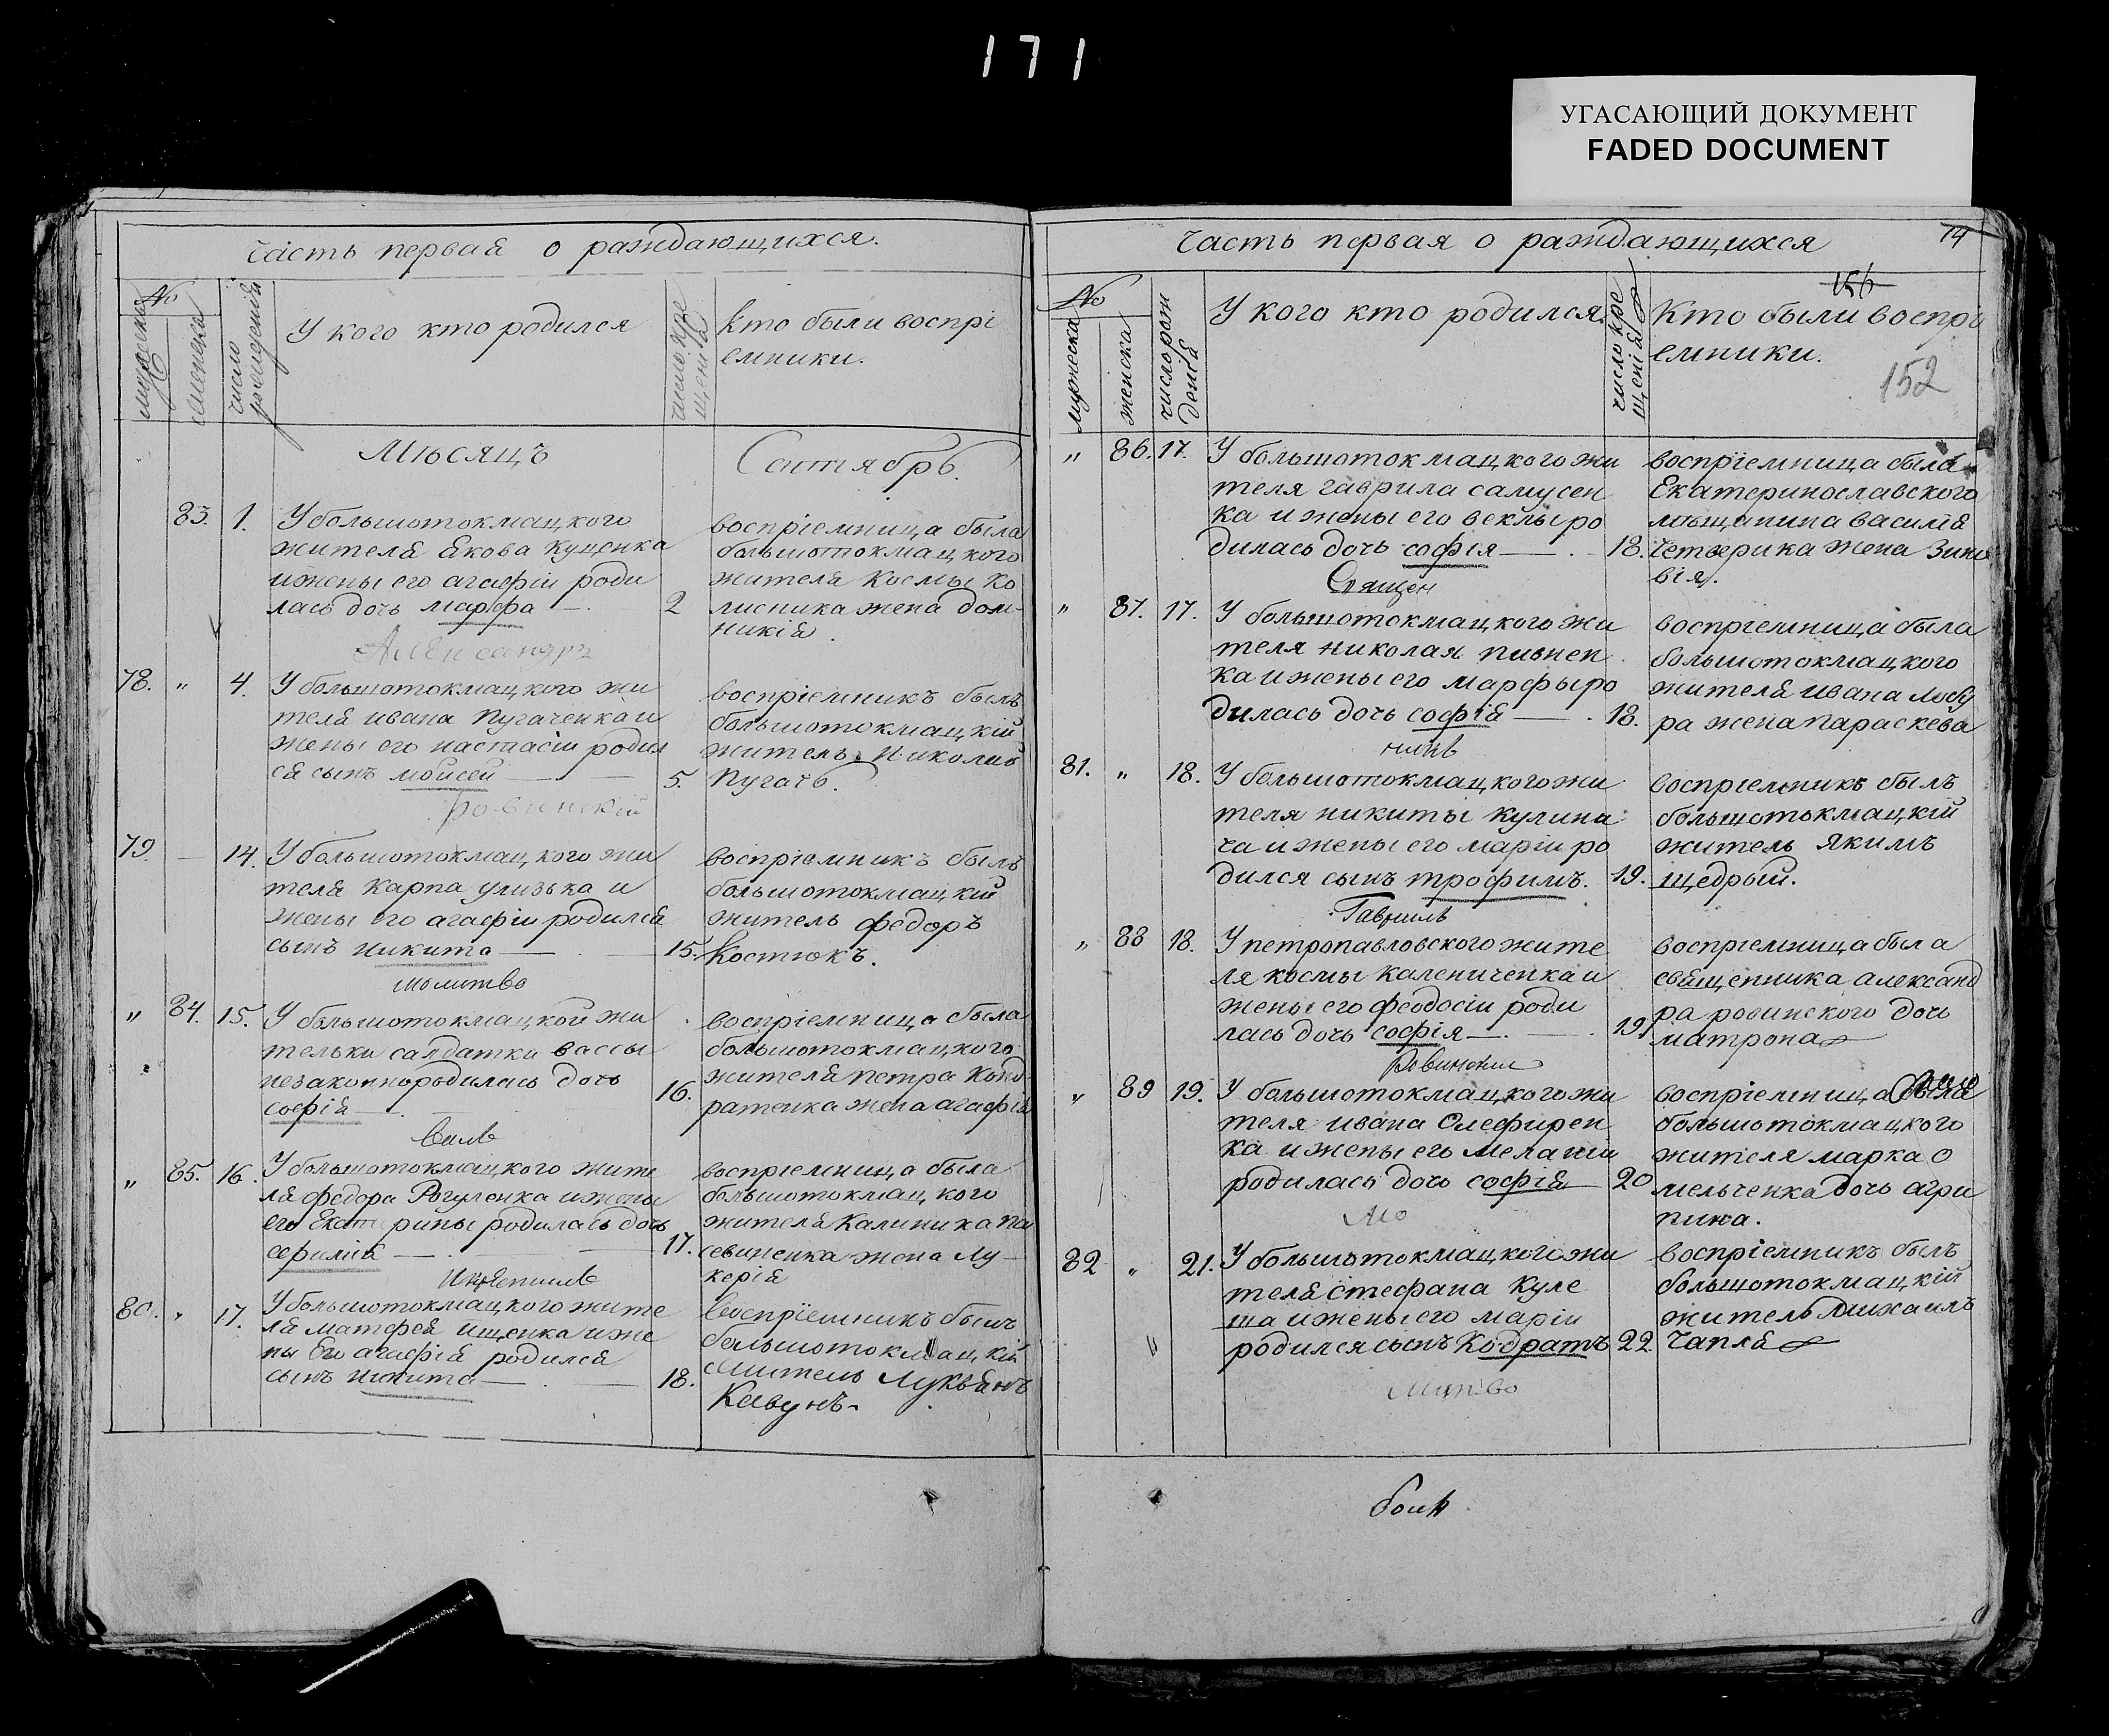 171
УГАСАЮЩИЙ ДОКУМЕНТ
FADED DOCUMENT
часть первая о раждающихся.
№
мужеска
женска
число рожденія
У кого кто родился
число кре
щенія
кто были воспрі
емники.
Мѣсяцъ Сентябрь.
83. 1. У большотокмацкого
жителя Якова куценка
и жены его агафіи роди
лась дочь марфа — 2
воспріемница была
большотокмацкого
жителя космы ко
лисника жена дом-
никія.
Александръ
78. „ 4. У большотокмацкого жи
теля ивана пугаченка и
жены его настасіи родил
ся сынъ моисей — 5.
воспріемникъ былъ
большотокмацкій
житель николай
пугачь.
ровинскій
79. — 14. У большотокмацкого жи
теля карпа улизька и
жены его агафіи родился
сынъ никита — 15.
воспріемникъ былъ
большотокмацкій
житель федоръ
костюкъ.
молитво
„ 84. 15. У большотокмацкой жи
тельки салдатки вассы
незаконнородилась дочь
софія — 16.
воспріемница была
большотокмацкого
жителя петра конд
ратенка жена агафія
„ 85. 16. У большотокмацкого жите
ля федора Рогуленка и жены
его Екатерины родилась дочь
— 17.
воспріемница была
большотокмацкого
жителя калиника па
севиненка жена лу
керія
80. „ 17. У большотокмацкого жите
ля матфея ищенка и же
ны его агафія родился
сынъ никита — 18.
воспріемникъ былъ
большотокмацкій
житель Лукьянъ
Кавунъ.
часть первая о раждающихся
14
156
152
№
мужеска
женска
число рож
денія
У кого кто родился.
число кре
щенія
Кто были воспрі
емники.
„ 86. 17. У большотокмацкого жи
теля гаврила самусен
ка и жены его веклы ро
дилась дочь софія — 18.
воспріемница была
Екатеринославского
мѣщанина василія
четверика жена Зино
вія.
Священ
„ 87. 17. У большотокмацкого жи
теля николая пивнен
ка и жены его марфы ро
дилась дочь софія — 18.
воспріемница была
большотокмацкого
жителя ивана мосу
ра жена параскева
никъ
81. „ 18. У большотокмацкого жи
теля никиты кулини
ча и жены его маріи ро
дился сынъ трофимъ. 19.
воспріемникъ былъ
большотокмацкій
житель якимъ
щедрый.
Гавриилъ
„ 88 18. У петропавловского жите
ля космы калениченка и
жены его феодосіи роди
лась дочь софія — 19
воспріемница была
священника александ
ра ровинского дочь
матрона
Ровинскій
„ 89 19. У большотокмацкого жи
теля ивана Олефирен
ка и жены его меланіи
родилась дочь софія — 20
воспріемница была
большотокмацкого
жителя марка о
мельченка дочь агри
пина.
Мо
82 „ 21. У большотокмацкого жи
теля стефана куле
ша и жены его маріи
родился сынъ кодратъ 22.
воспріемникъ былъ
большотокмацкій
житель михаилъ
чапля